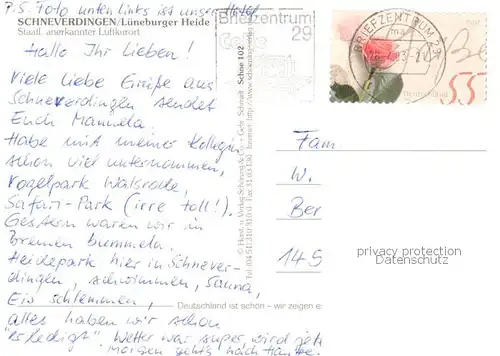 P.S. Foto unten links ist unser Hotel
SCHNEVERDINGEN/Lüneburger Heide
Staatl. anerkannter Luftkurort
Hallo Ihr Lieben!
Viele liebe Grüße aus
Schneverdingen sendet
Euch Manuela.
Habe mit meiner Kollegin
schon viel unternommen,
Vogelpark Walsrode,
Safari-Park (irre toll!).
Gestern waren wir in
Bremen bummeln.
Heidepark hier in Schnever-
dingen, schwimmen, Sauna,
Eis schlemmen,
alles haben wir schon
"erledigt". Wetter war super, wird
Morgen gehts nach Hause.
Briefzentrum
29
BRIEFZENTRUM 29
Deutschland
55
Schne 102
Fam
W.
Ber
145
privacy protection
Datenschutz
Deutschland ist schön – wir zeigen e